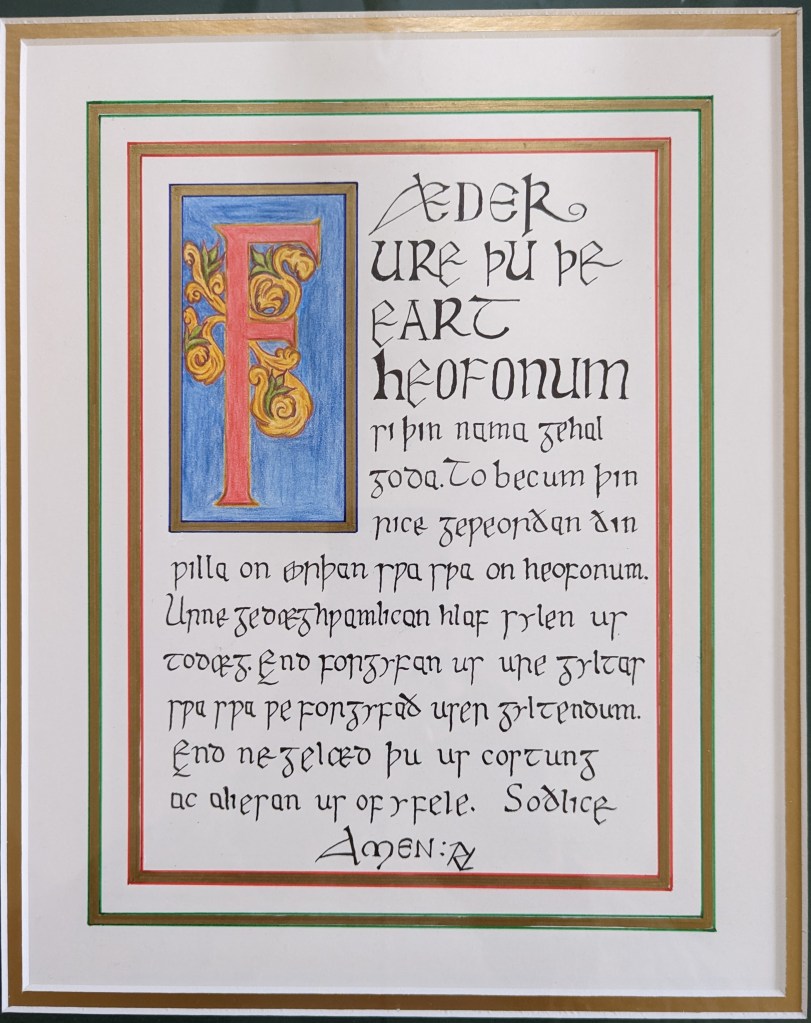 FÆDER
URE ÞU ÞE
EART
HEOFONUM
si þin nama gehal
goda. To becum þin
rice geƿeorðan ðin
ƿilla on eorþan sƿa sƿa on heofonum.
Urne gedæghƿamlican hlaf sylen us
todæg. End forgyfan us ure gyltas
sƿa sƿa ƿe forgyfað uren gyltendum.
End ne gelæd þu us costung
ac aliesan us of yfele. Soðlice
AMEN: